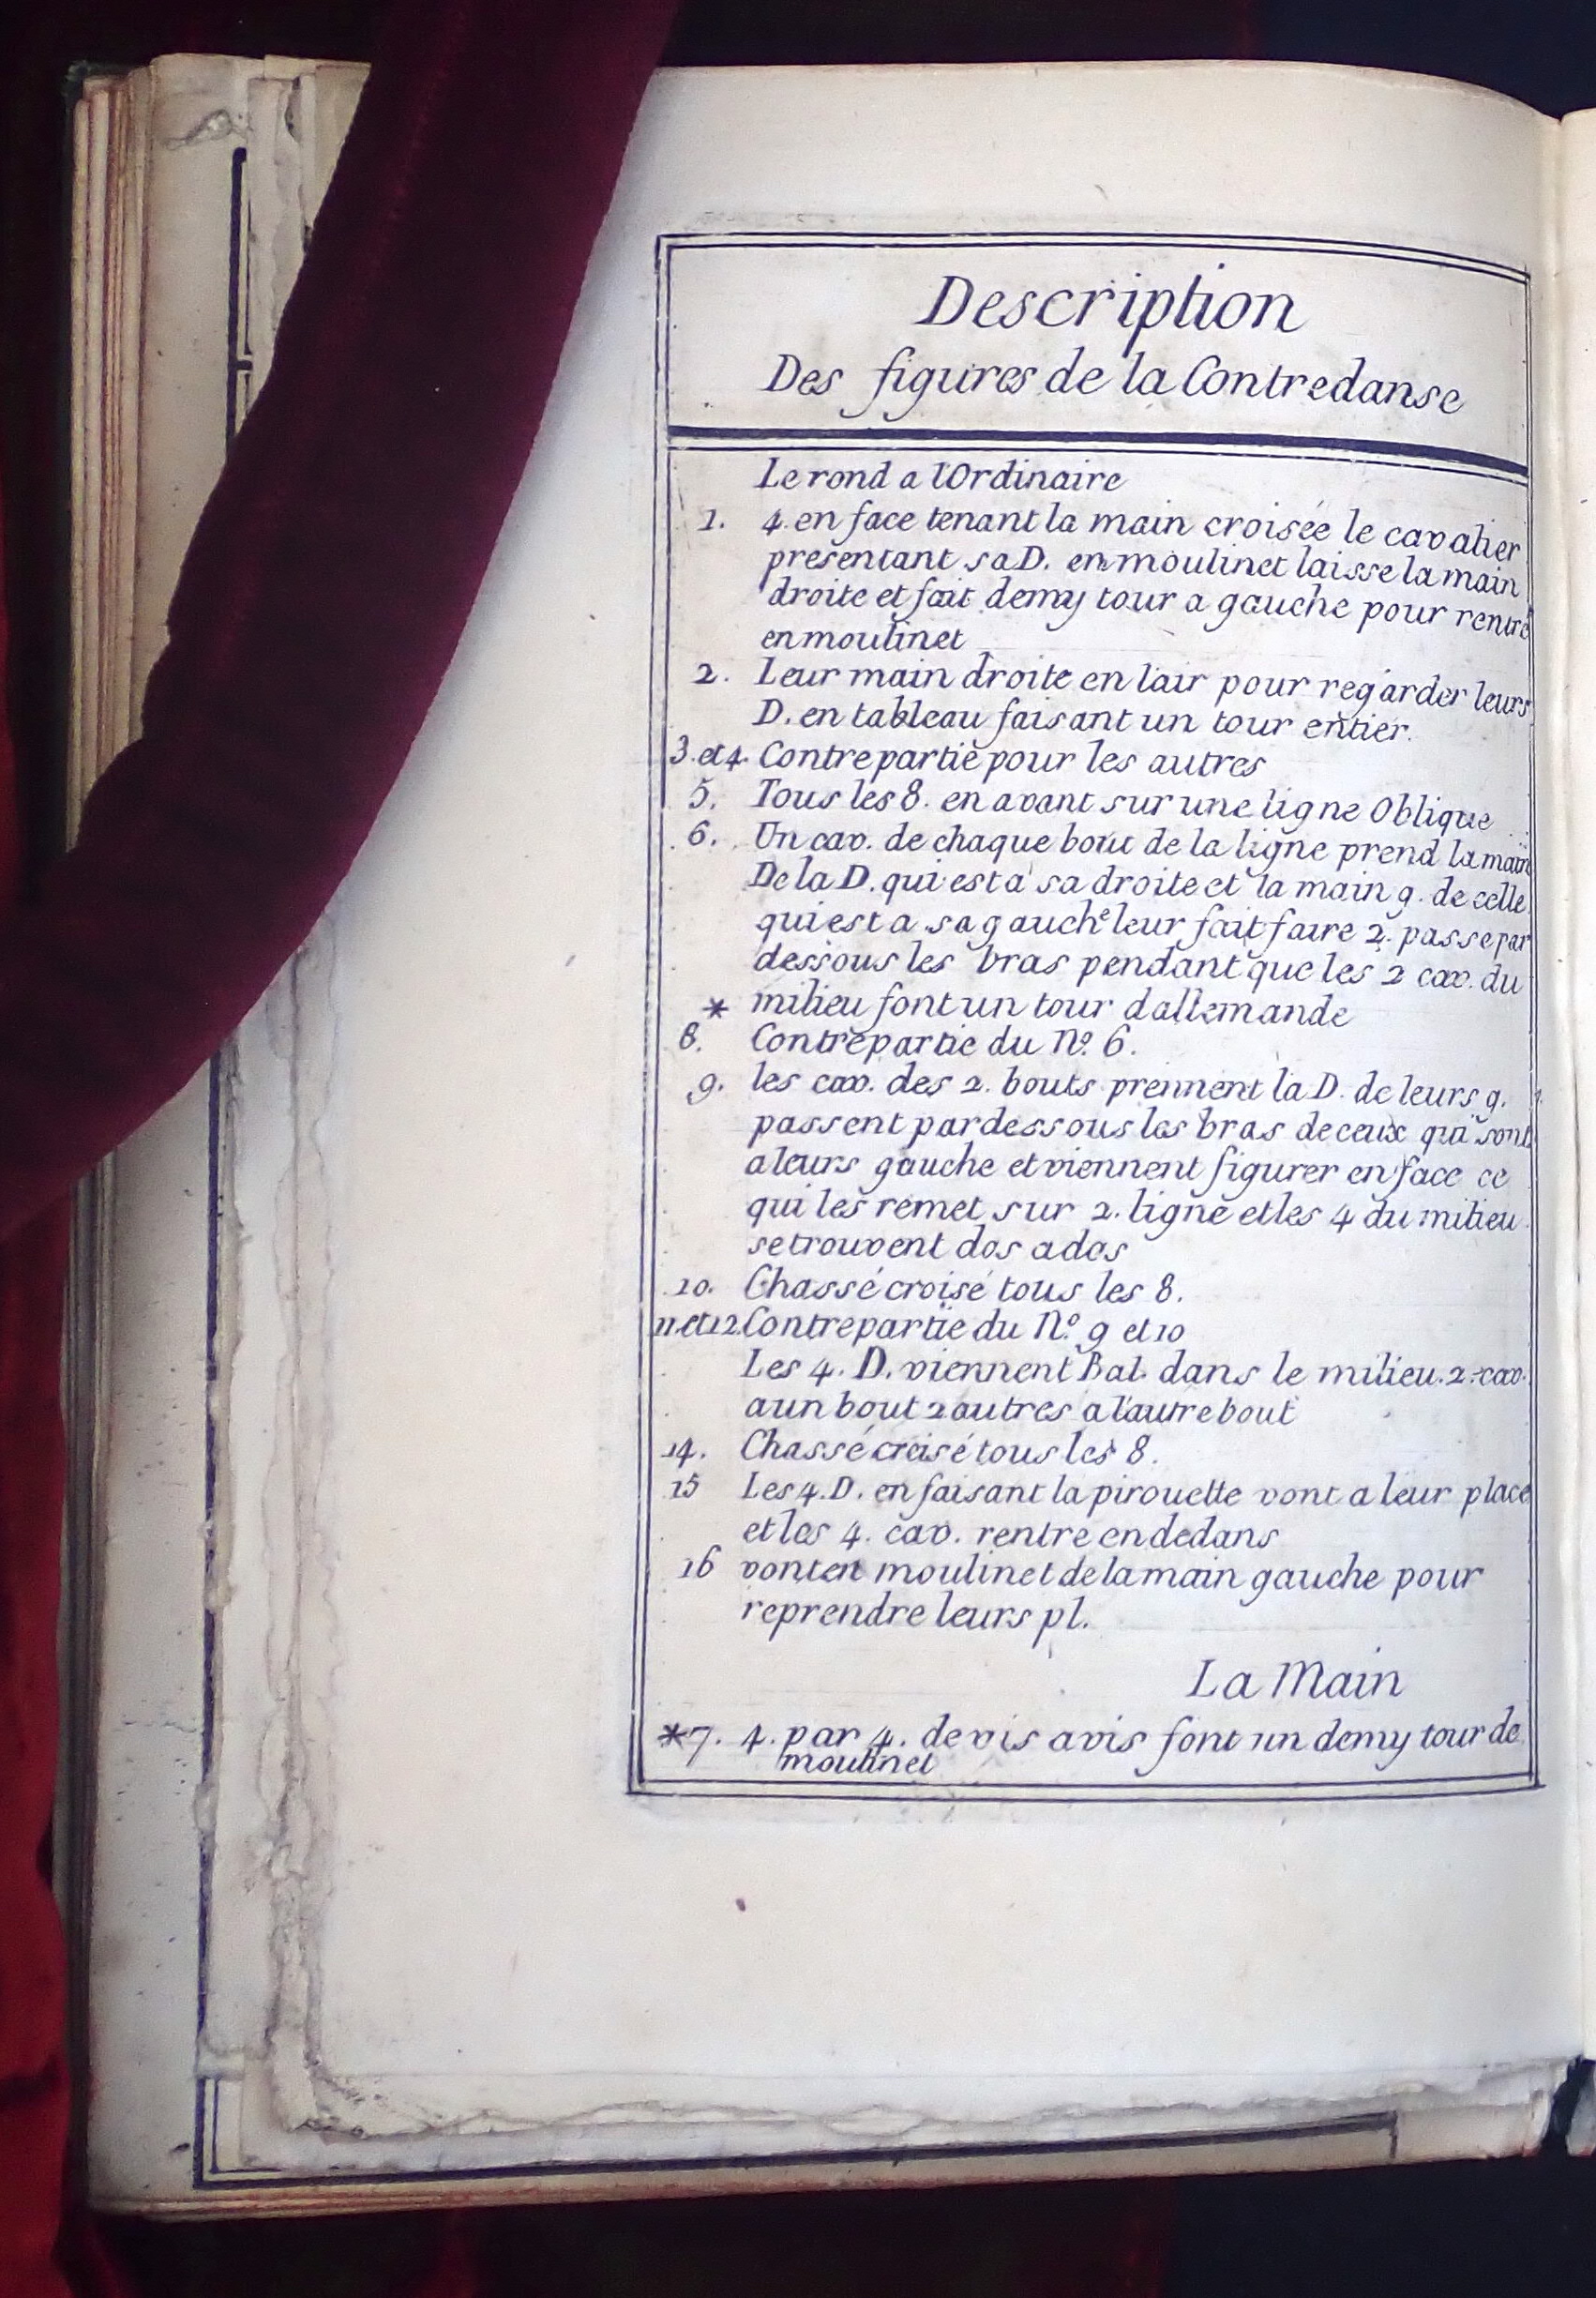 Description
Des figures de la Contredanse
Le rond a l'Ordinaire
1. 4. en face tenant la main croisée le cavalier
presentant sa D. en moulinet laisse la main
droite et fait demy tour a gauche pour rentre
en moulinet
2. Leur main droite en lair pour regarder leurs
D. en tableau faisant un tour entier.
3. et 4. Contrepartie pour les autres
5. Tous les 8. en avant sur une ligne Oblique
6. Un cav. de chaque bout de la ligne prend la main
De la D. qui est a sa droite et la main g. de celle
qui est a sa gauche leur fait faire 2. passe par
dessous les bras pendant que les 2 cav. du
* milieu font un tour dallemande
8. Contrepartie du No. 6.
9. les cav. des 2. bouts prennent la D. de leurs g.
passent par dessous les bras de ceux qui sont
a leurs gauche et viennent figurer en face ce
qui les remet sur 2. ligne et les 4 du milieu
se trouvent dos a dos
10. Chassé croisé tous les 8.
11 et 12. Contrepartie du No. 9 et 10
Les 4. D. viennent Bal. dans le milieu. 2. cav.
a un bout 2 autres a l'autre bout
14. Chassé croisé tous les 8.
15 Les 4. D. en faisant la pirouette vont a leur place
et les 4. cav. rentre en dedans
16 vont en moulinet de la main gauche pour
reprendre leurs pl.
La Main
*7. 4. par 4. de vis a vis font un demy tour de
moulinet